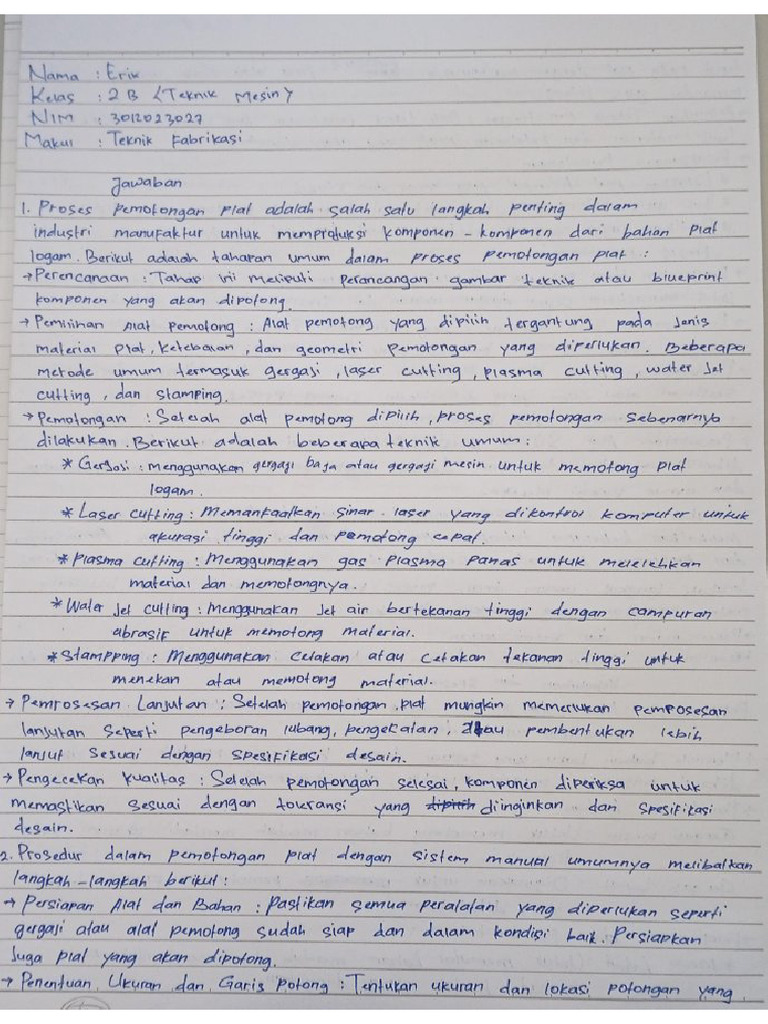 Nama : Erik
Kelas : 2B (Teknik Mesin)
NIM : 3012023027
Makul : Teknik Fabrikasi
Jawaban
1. Proses pemotongan plat adalah salah satu langkah penting dalam
industri manufaktur untuk memproduksi komponen-komponen dari bahan plat
logam. Berikut adalah tahapan umum dalam proses pemotongan plat :
→ Perencanaan : Tahap ini meliputi perancangan gambar teknik atau blueprint
komponen yang akan dipotong.
→ Pemilihan Alat pemotong : Alat pemotong yang dipilih tergantung pada jenis
material plat, ketebalan, dan geometri pemotongan yang diperlukan. Beberapa
metode umum termasuk gergaji, laser cutting, plasma cutting, water jet
cutting, dan stamping.
→ Pemotongan : Setelah alat pemotong dipilih, proses pemotongan sebenarnya
dilakukan. Berikut adalah beberapa teknik umum :
* Gergaji : menggunakan gergaji baja atau gergaji mesin untuk memotong plat
logam.
* Laser cutting : Memanfaatkan sinar laser yang dikontrol komputer untuk
akurasi tinggi dan pemotong cepat.
* Plasma cutting : Menggunakan gas plasma panas untuk melelehkan
material dan memotongnya.
* Water jet cutting : Menggunakan jet air bertekanan tinggi dengan campuran
abrasif untuk memotong material.
* Stampping : Menggunakan cetakan atau cetakan tekanan tinggi untuk
menekan atau memotong material.
→ Pemrosesan Lanjutan : Setelah pemotongan, plat mungkin memerlukan pemposesan
lanjutan seperti pengeboran lubang, pengekalan, atau pembentukan lebih
lanjut sesuai dengan spesifikasi desain.
→ Pengecekan Kualitas : Setelah pemotongan selesai, komponen diperiksa untuk
memastikan sesuai dengan toleransi yang dipilih diinginkan dan spesifikasi
desain.
2. Prosedur dalam pemotongan plat dengan sistem manual umumnya melibatkan
langkah-langkah berikut :
→ Persiapan Alat dan Bahan : Pastikan semua peralatan yang diperlukan seperti
gergaji atau alat pemotong sudah siap dan dalam kondisi baik. Persiapkan
juga plat yang akan dipotong.
→ Penentuan Ukuran dan Garis Potong : Tentukan ukuran dan lokasi potongan yang